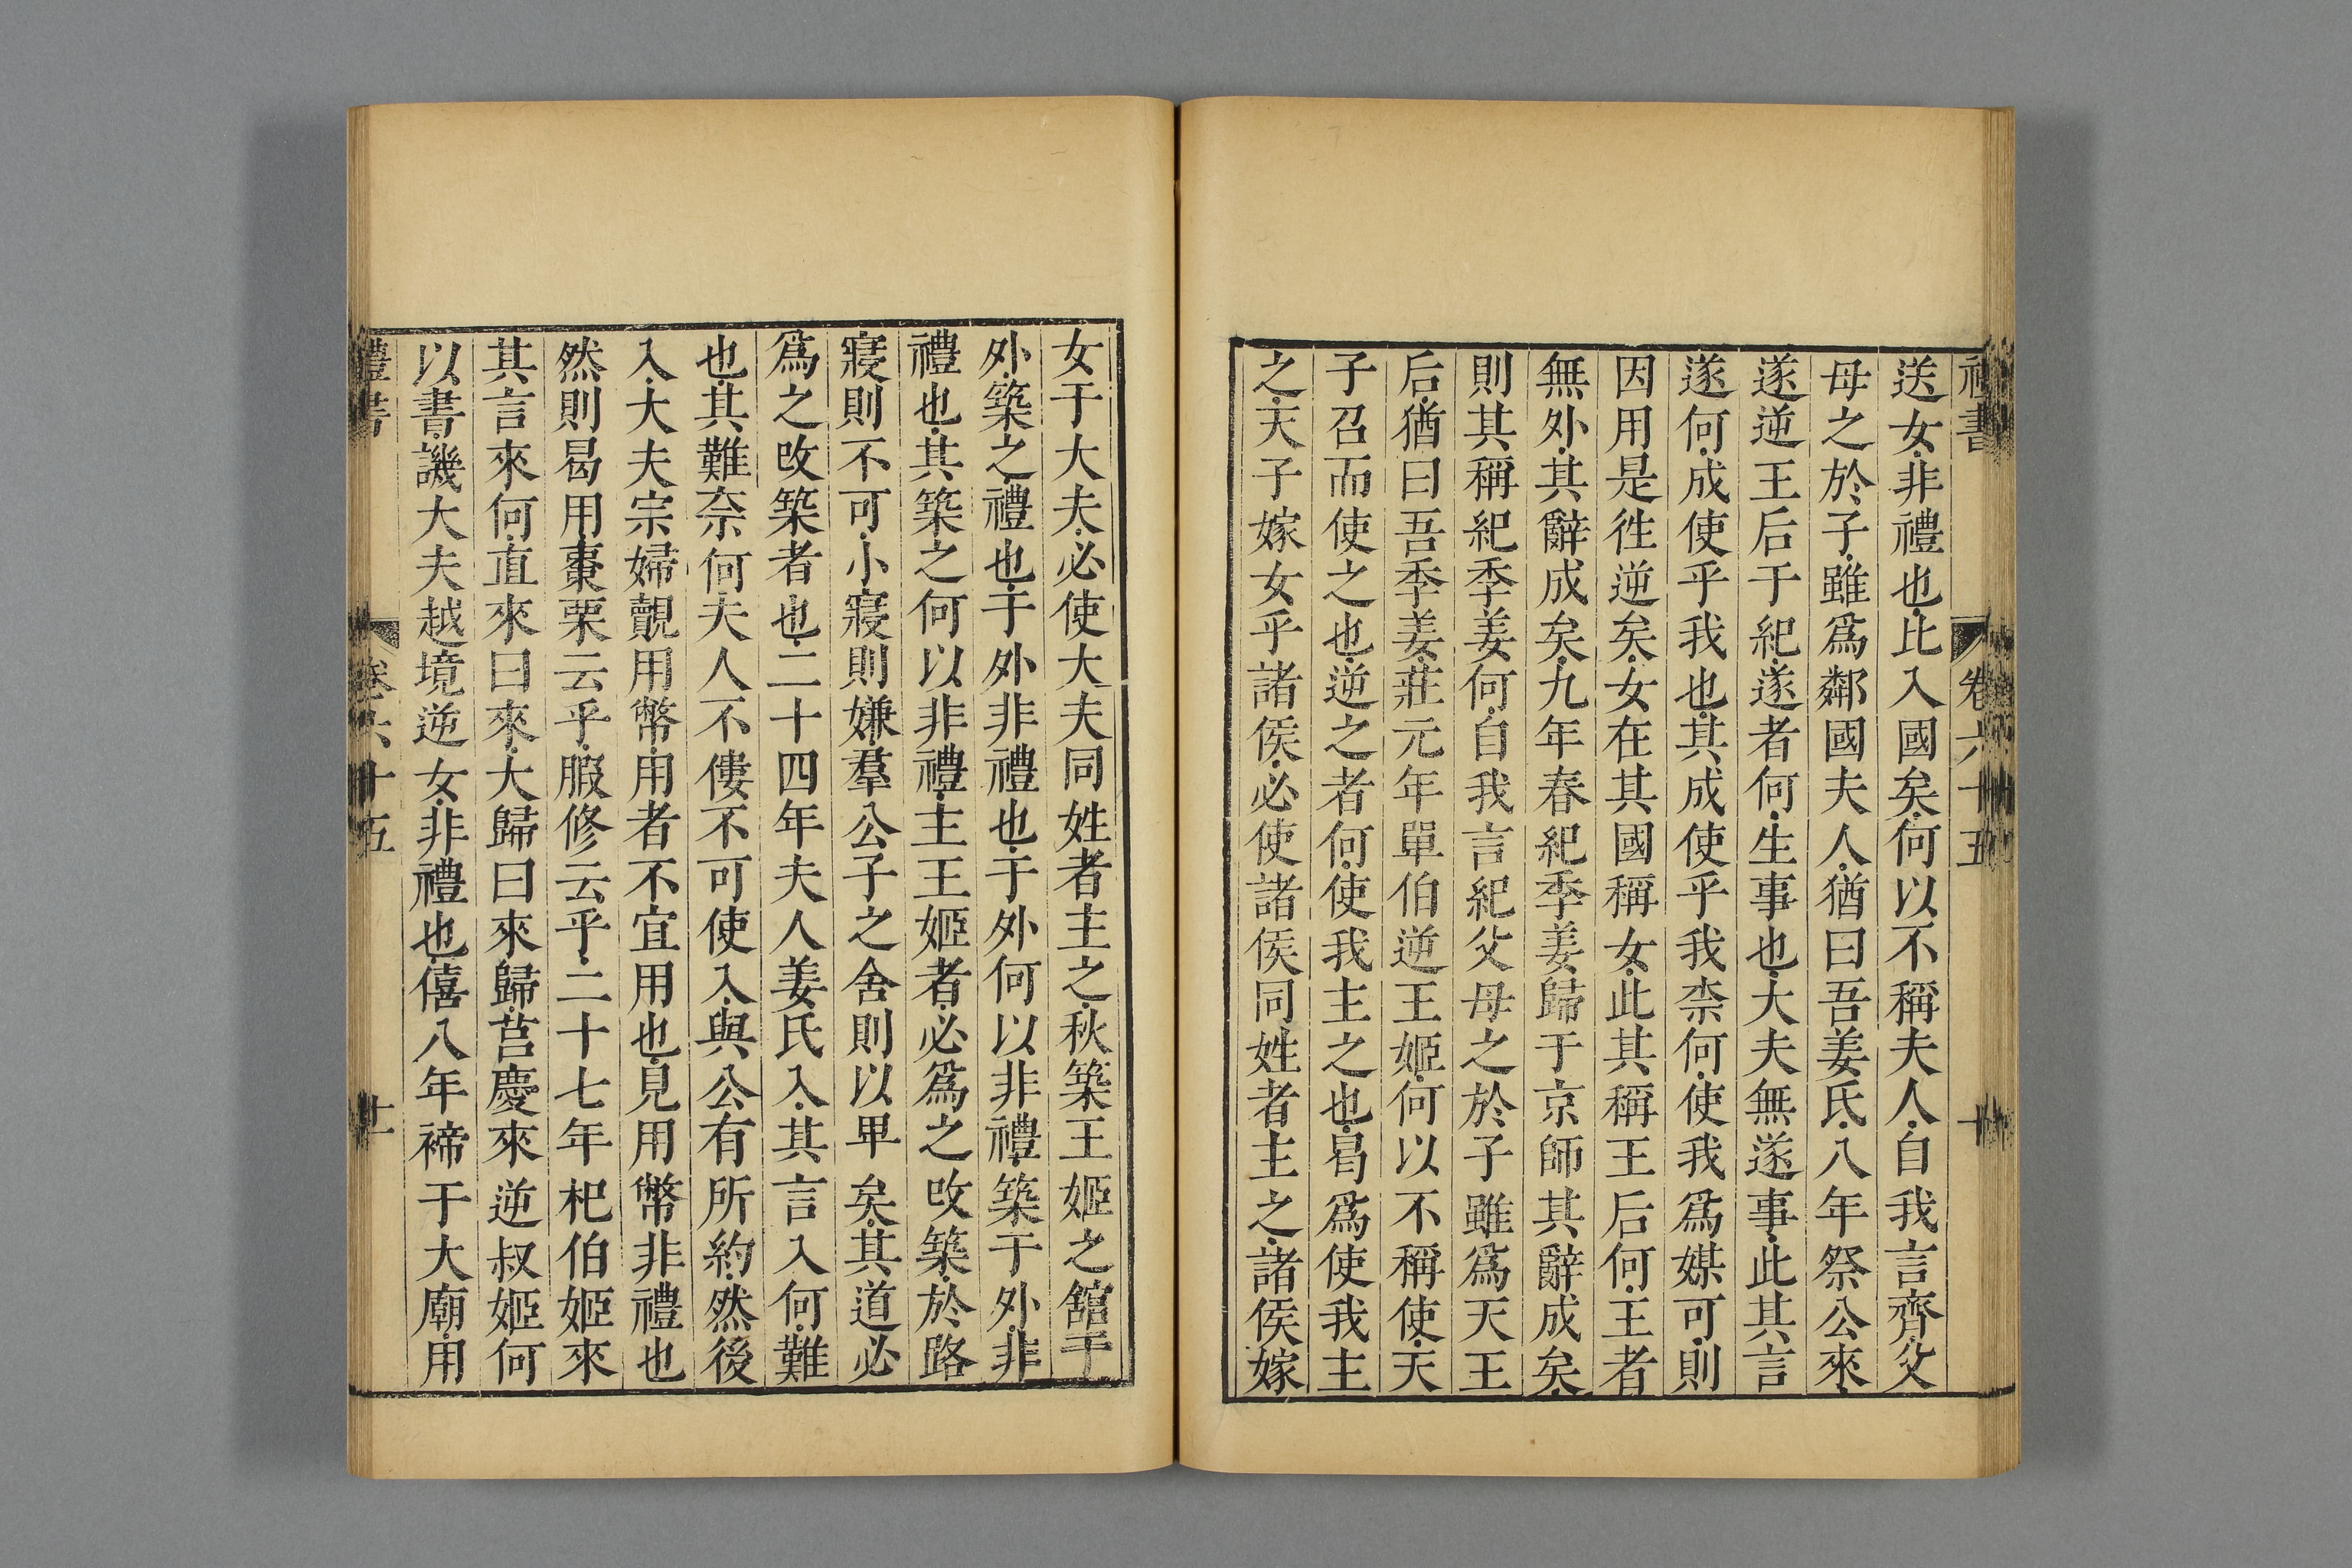 送女非禮也此入國矣何以不稱夫人自我言齊父
母之於子雖爲鄰國夫人猶曰吾姜氏八年祭公來
遂逆王后于紀遂者何生事也大夫無遂事此其言
遂何成使乎我也其成使乎我柰何使我爲媒可則
因用是徃逆矣女在其國稱女此其稱王后何王者
無外其辭成矣九年春紀季姜歸于京師其辭成矣
則其稱紀季姜何自我言紀父母之於子雖爲天王
后猶曰吾季姜莊元年單伯逆王姬何以不稱使天
子召而使之也逆之者何使我主之也曷爲使我主
之天子嫁女乎諸侯必使諸侯同姓者主之諸侯嫁
女于大夫必使大夫同姓者主之秋築王姬之舘于
外築之禮也于外非禮也于外何以非禮築于外非
禮也其築之何以非禮主王姬者必爲之攺築於路
寢則不可小寢則嫌羣公子之舍則以卑矣其道必
爲之攺築者也二十四年夫人姜氏入其言入何難
也其難奈何夫人不僂不可使入與公有所約然後
入大夫宗婦覿用幣用者不宜用也見用幣非禮也
然則曷用棗栗云乎腶修云乎二十七年杞伯姬來
其言來何直來曰來大歸曰來歸莒慶來逆叔姬何
以書譏大夫越境逆女非禮也僖八年禘于大廟用
禮書 卷六十五 十一